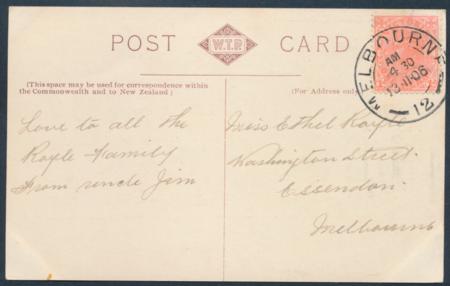 POST W.T.P. CARD
MELBOURNE
AM
4 30
13·11·06
12
(This space may be used for correspondence within
the Commonwealth and to New Zealand)
(For Address only
Love to all the
Royle Family
From uncle Jim
Miss Ethel Royle
Washington Street.
Essendon.
Melbourne